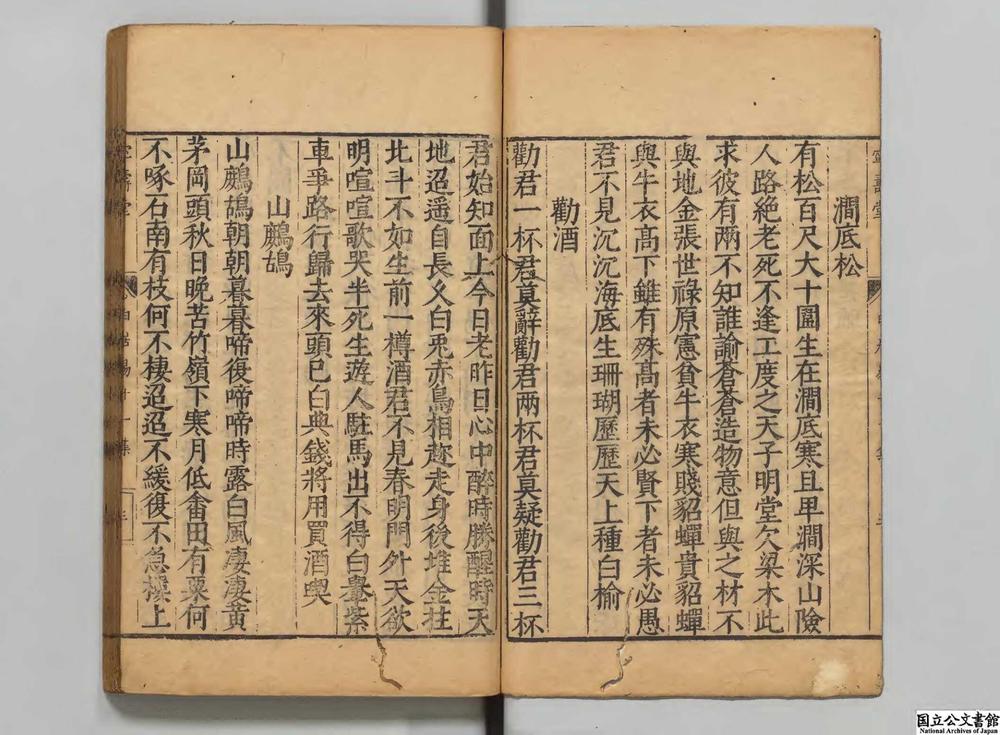 澗底松
有松百尺大十圍生在澗底寒且卑澗深山險
人路絶老死不逢工度之天子明堂欠梁木此
求彼有兩不知誰諭蒼蒼造物意但與之材不
與地金張世祿原憲貧牛衣寒賤貂蟬貴貂蟬
與牛衣高下雖有殊高者未必賢下者未必愚
君不見沉沉海底生珊瑚歷歷天上種白榆
勸酒
勸君一杯君莫辭勸君兩杯君莫疑勸君三杯
君始知面上今日老昨日心中醉時勝醒時天
地迢遥自長乆白兎赤烏相趂走身後堆金拄
北斗不如生前一樽酒君不見春明門外天欲
明喧喧歌哭半死生遊人駐馬出不得白轝紫
車爭路行歸去來頭已白典錢將用買酒喫
山鷓鴣
山鷓鴣朝朝暮暮啼復啼啼時露白風凄凄黄
茅岡頭秋日晚苦竹嶺下寒月低畬田有粟何
不啄石南有枝何不棲迢迢不緩復不急樓上
国立公文書館
National Archives of Japan